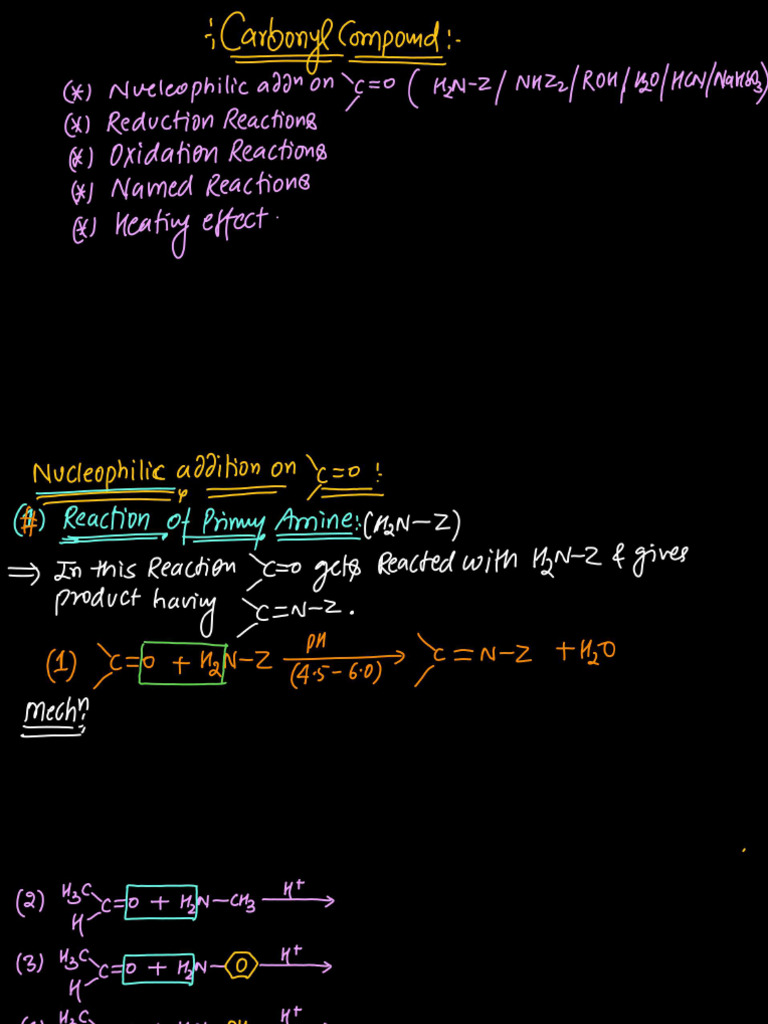 :- Carbonyl Compound :-
(*) Nucleophilic addn on >C=O ( H2N-Z / NHZ2 / ROH / H2O / HCN / NaHSO3)
(*) Reduction Reactions
(*) Oxidation Reactions
(*) Named Reactions
(*) Heating effect.
Nucleophilic addition on >C=O :
(#) Reaction of Primary Amine: (H2N-Z)
⇒ In this Reaction >C=O gets Reacted with H2N-Z & gives
product having >C=N-Z.
(1) >C=O + H2N-Z pH (4.5-6.0) → >C=N-Z + H2O
Mechn:
(2) H3C H >C=O + H2N-CH3 H+ →
(3) H3C H >C=O + H2N- H+ →